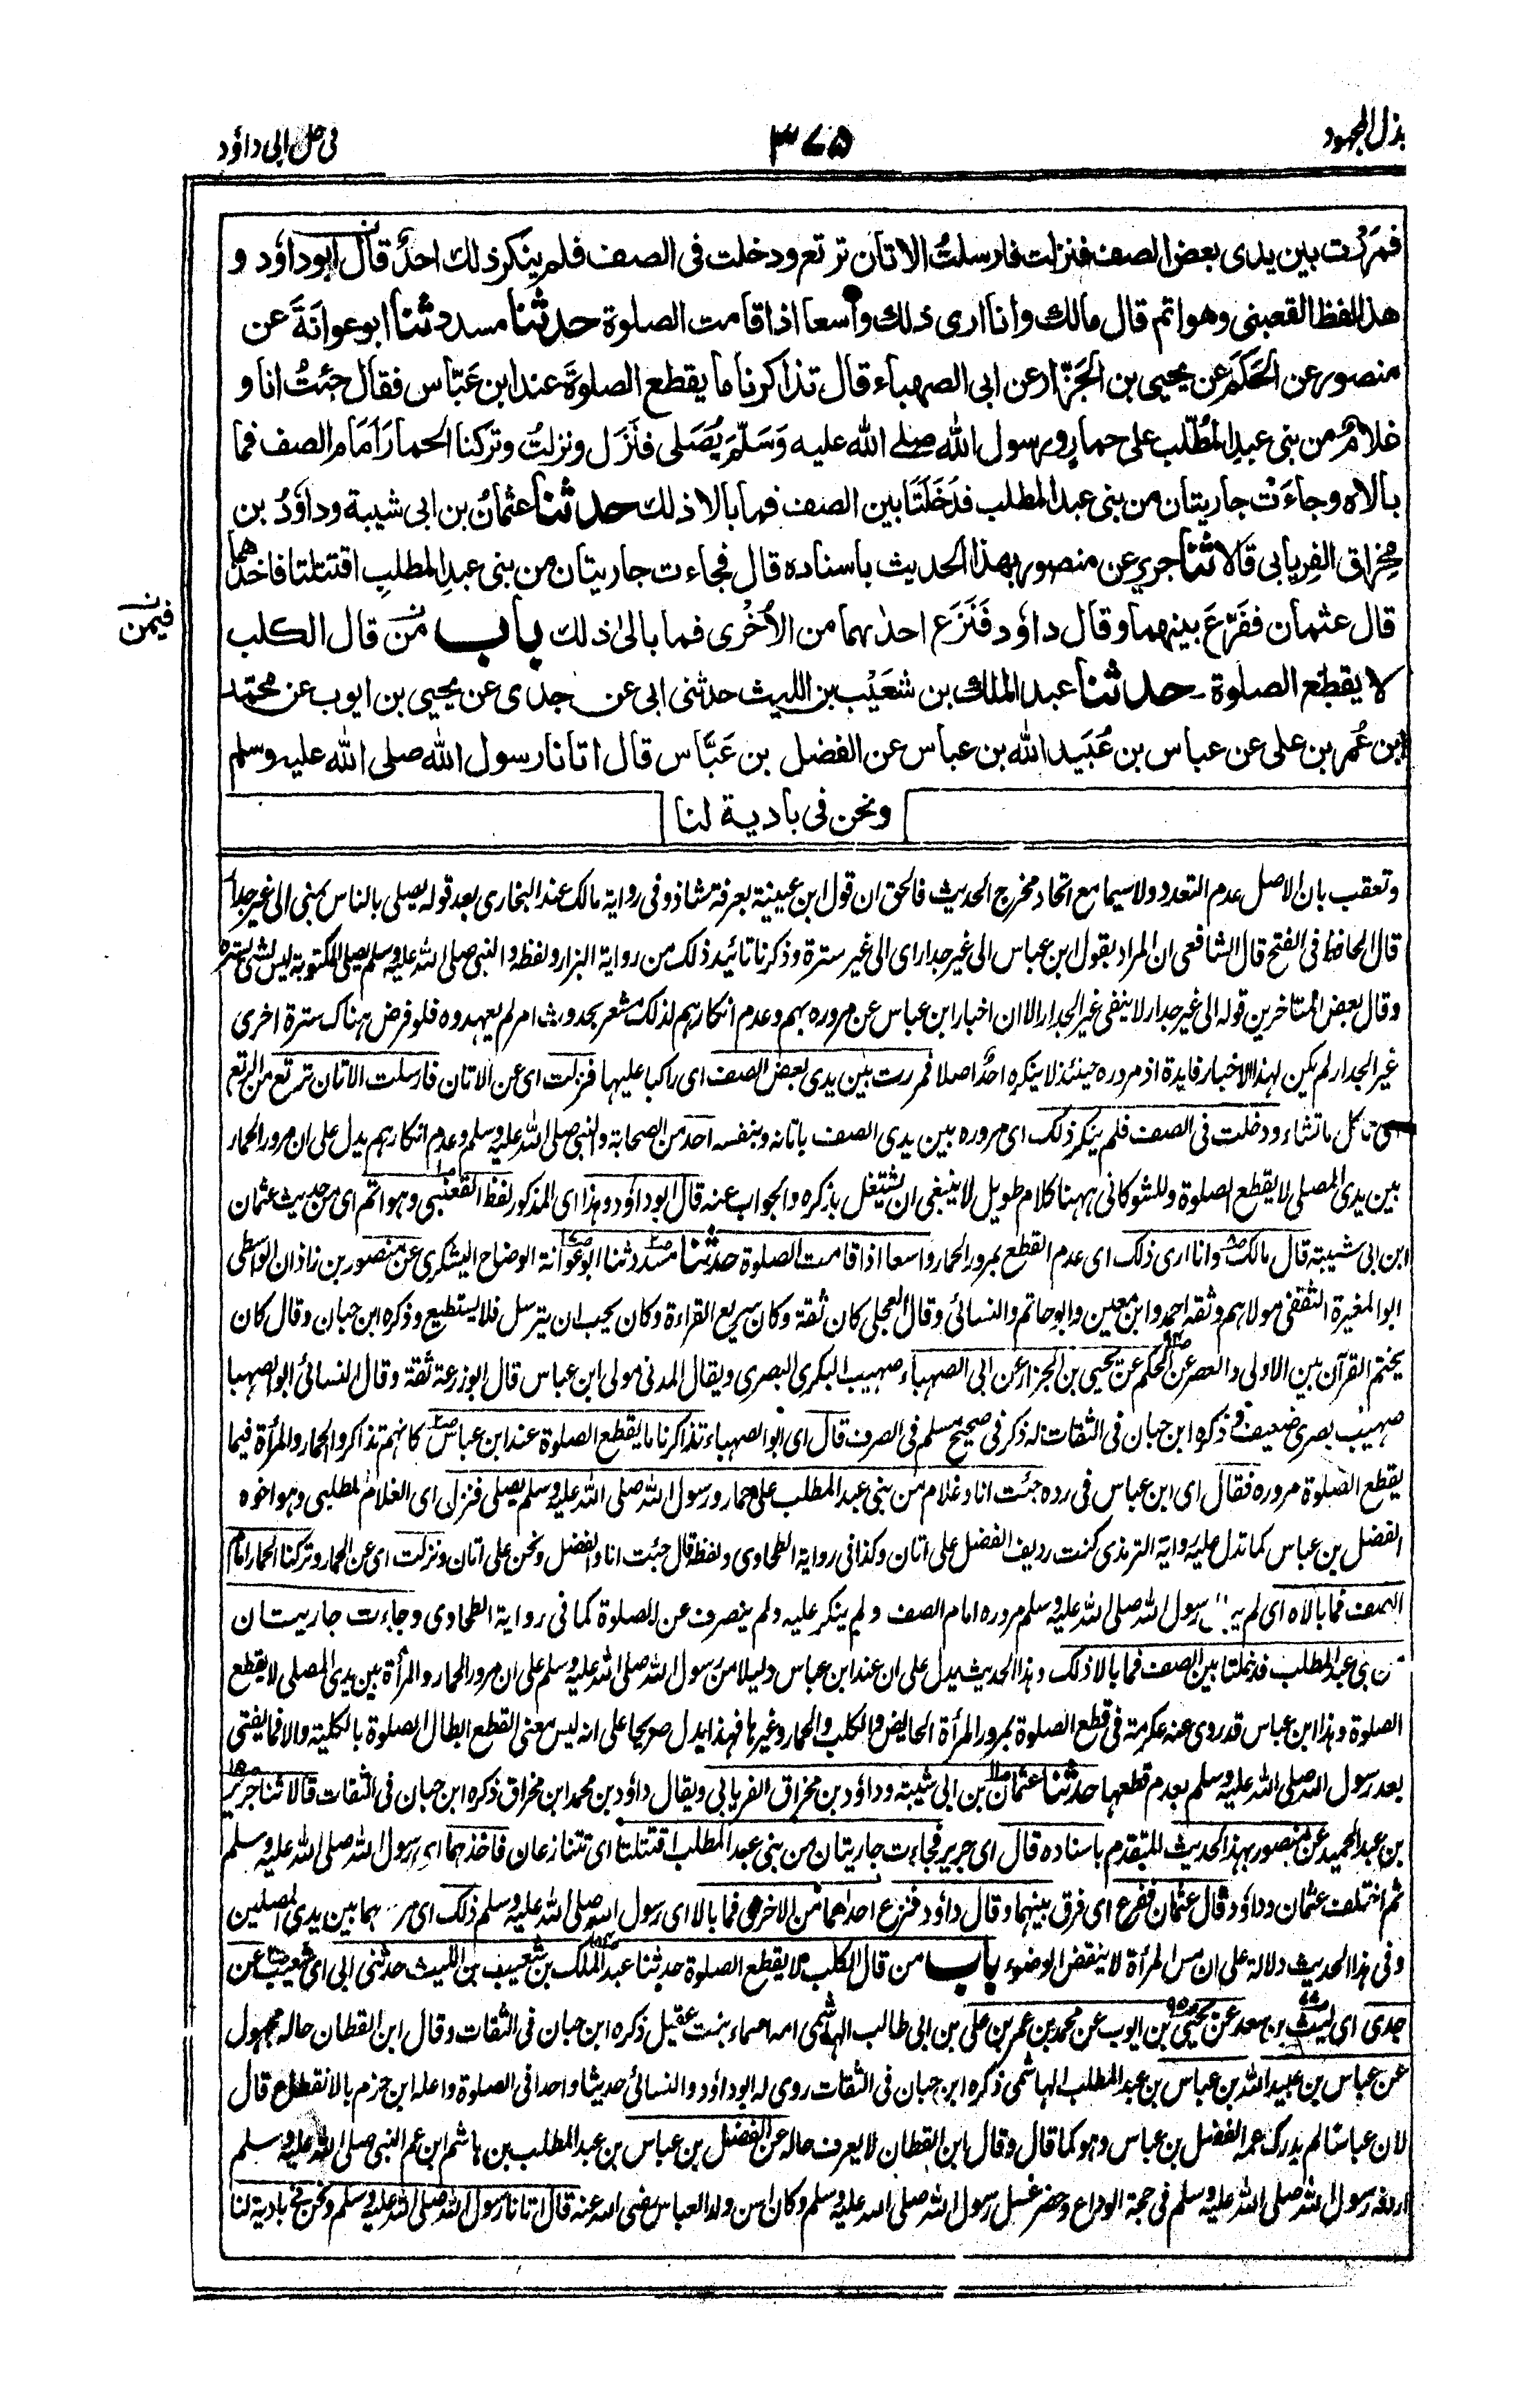 بذل المجهود
٣٧٥
فى حل ابى داؤد
فمررت بين يدى بعض الصف فنزلت فارسلتُ الاتان ترتع ودخلت فى الصف فلم ينكر ذلك احدٌ قال ابوداؤد و
هذا لفظ القعنبى وهو اتم قال مالك وانا ارى ذلك واسعا اذا قامت الصلوة حدثنا مسدد ثنا ابو عوانَةَ عن
منصور عن الحَكَمِ عن يحيى بن الجَزّار عن ابى الصهباء قال تذاكرنا ما يقطع الصلوةَ عند ابن عَبّاس فقال جئتُ انا و
غلامٌ من بنى عبدِ المُطّلب على حمارٍ ورسول الله صلى الله عليه وَسَلَّمَ يُصَلى فنَزَل ونزلتُ وتركنا الحمارَ اَمَام الصف فما
بالاه وجاءَتْ جاريتان من بنى عبد المطلب فدَخَلَتَا بين الصف فما بالا ذلك حدثنا عثمانُ بن ابى شيبة وداوٗدُ بن
مِخراق الفِريابى قالا ثنا جرير عن منصور بهذا الحديث باسناده قال فجاءت جاريتان من بنى عبدِ المطلبِ اقتتلتا فاخذهما
قال عثمان ففَرَّعَ بينهما وقال داوٗد فَنَزَعَ احدٰهما من الاُخْرٰى فما بالىٰ ذلك باب من قال الكلب
فيمن
لا يقطع الصلوة - حدثنا عبد الملك بن شعَيْب بن الليث حدثنى ابى عن جدى عن يحيى بن ايوب عن محمّد
ابن عُمر بن على عن عباس بن عُبَيد الله بن عباس عن الفضل بن عَبَّاس قال اتانا رسول الله صلى الله عليه وسلم
ونحن فى بادية لنا
وتعقب بان الاصل عدم التعدد ولا سيما مع اتحاد مخرج الحديث فالحق ان قول ابن عيينة بعرفة شاذ وفى رواية مالك عند البخارى بعد قوله يصلى بالناس بمنى الى غير جدار
قال الحافظ فى الفتح قال الشافعى ان المراد بقول ابن عباس الى غير جدار اى الى غير سترة وذكرنا تائيد ذلك من رواية البزار ولفظه والنبى صلى الله عليه وسلم يصلى المكتوبة ليس لشئ يستره
وقال بعض المتاخرين قوله الى غير جدار لا ينفى غير الجدار الا ان اخبار ابن عباس عن مروره بهم وعدم انكارهم لذلك مشعر بحدوث امر لم يعهدوه فلو فرض هناك سترة اخرى
غير الجدار لم يكن لهذا الاخبار فايدة اذ مروره حينئذ لا ينكره احدٌ اصلا فمررت بين يدى بعض الصف اى راكبا عليها فنزلت اى عن الاتان فارسلت الاتان ترتع من الرتع
اى تاكل ما تشاء ودخلت فى الصف فلم ينكر ذلك اى مروره بين يدى الصف باتانه وبنفسه احد من الصحابة والنبى صلى الله عليه وسلم وعدم انكارهم يدل على ان مرور الحمار
بين يدى المصلى لا يقطع الصلوة وللشوكانى ههنا كلام طويل لا ينبغى ان يشتغل بذكره والجواب عنه قال ابوداؤد وهذا اى المذكور لفظ القعنبى وهو اتم اى من حديث عثمان
ابن ابى شيبة قال مالك وانا ارى ذلك اى عدم القطع بمرور الحمار واسعا اذا قامت الصلوة حدثنا مسدد ثنا ابو عوانة الوضاح اليشكرى عن منصور بن زاذان الواسطى
ابو المغيرة الثقفى مولاهم وثقه احمد وابن معين وابو حاتم والنسائى وقال العجلى كان ثقة وكان سريع القراءة وكان يحب ان يترسل فلا يستطيع وذكره ابن حبان وقال كان
يختم القرآن بين الاولى والعصر عن الحكم عن يحيى بن الجزار عن ابى الصهباء صهيب البكرى البصرى ويقال المدنى مولى ابن عباس قال ابو زرعة ثقة وقال النسائى ابو الصهبا
صهيب بصرى ضعيف وذكره ابن حبان فى الثقات له ذكر فى صحيح مسلم فى الصرف قال اى ابو الصهباء تذاكرنا ما يقطع الصلوة عند ابن عباس كانهم تذاكروا الحمار والمرأة فيما
يقطع الصلوة مروره فقال اى ابن عباس فى رده جئت انا وغلام من بنى عبد المطلب على حمار ورسول الله صلى الله عليه وسلم يصلى فنزل اى الغلام المطلبى وهو اخوه
الفضل بن عباس كما تدل عليه رواية الترمذى كنت رديف الفضل على اتان وكذا فى رواية الطحاوى ولفظه قال جئت انا والفضل ونحن على اتان ونزلت اى عن الحمار وتركنا الحمار امام
الصف فما بالاه اى لم رسول الله صلى الله عليه وسلم مروره امام الصف ولم ينكر عليه ولم ينصرف عن الصلوة كما فى رواية الطحاوى وجاءت جاريتان
من بنى عبد المطلب فدخلتا بين الصف فما بالا ذلك وهذا الحديث يدل على ان عند ابن عباس دليلا من رسول الله صلى الله عليه وسلم على ان مرور الحمار والمرأة بين يدى المصلى لا يقطع
الصلوة وهذا ابن عباس قد روى عنه عكرمة فى قطع الصلوة بمرور المرأة الحايض والكلب والحمار وغيرها فهذا يدل صريحا على انه ليس معنى القطع ابطال الصلوة بالكلية والا فما يفتى
بعد رسول الله صلى الله عليه وسلم بعدم قطعها حدثنا عثمان بن ابى شيبة وداؤد بن مخراق الفريابى ويقال داؤد بن محمد ابن مخراق ذكره ابن حبان فى الثقات قالا ثنا جرير
بن عبد الحميد عن منصور بهذا الحديث المتقدم باسناده قال اى جرير فجاءت جاريتان من بنى عبد المطلب اقتتلتا اى تتنازعان فاخذهما اى رسول الله صلى الله عليه وسلم
ثم اختلف عثمان وداؤد قال عثمان ففرع اى فرق بينهما وقال داؤد فنزع احداهما من الاخرى فما بالا اى رسول الله صلى الله عليه وسلم ذلك اى بين يدى المصلين
وفى هذا الحديث دلالة على ان مس المرأة لا ينقض الوضوء باب من قال الكلب لا يقطع الصلوة حدثنا عبد الملك بن شعيب بن الليث حدثنى ابى اى شعيب عن
جدى اى ليث بن سعد عن يحيى بن ايوب عن محمد بن عمر بن على بن ابى طالب الهاشمى امه اسماء بنت عقيل ذكره ابن حبان فى الثقات وقال ابن القطان حاله مجهول
عن عباس بن عبيد الله بن عباس بن عبد المطلب الهاشمى ذكره ابن حبان فى الثقات روى له ابوداؤد والنسائى حديثا واحدا فى الصلوة واعله ابن حزم بالانقطاع قال
لان عباسا لم يدرك عمه الفضل بن عباس وهو كما قال وقال ابن القطان لا يعرف حاله عن الفضل بن عباس بن عبد المطلب بن هاشم ابن عم النبى صلى الله عليه وسلم
اردفه رسول الله صلى الله عليه وسلم فى حجة الوداع وحضر غسل رسول الله صلى الله عليه وسلم وكان اسن ولد العباس رضى الله عنه قال اتانا رسول الله صلى الله عليه وسلم ونحن فى بادية لنا